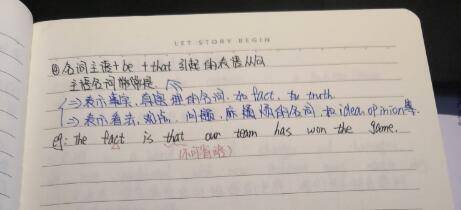 LET STORY BEGIN
② 名词主语+be+that 引起的表语从句
主语名词常常是
表示事实,真理的名词.如fact.truth
表示看法,观点,问题,麻烦的名词.如idea.opinion等.
eg: The fact is that our team has won the game.
(不可省略)